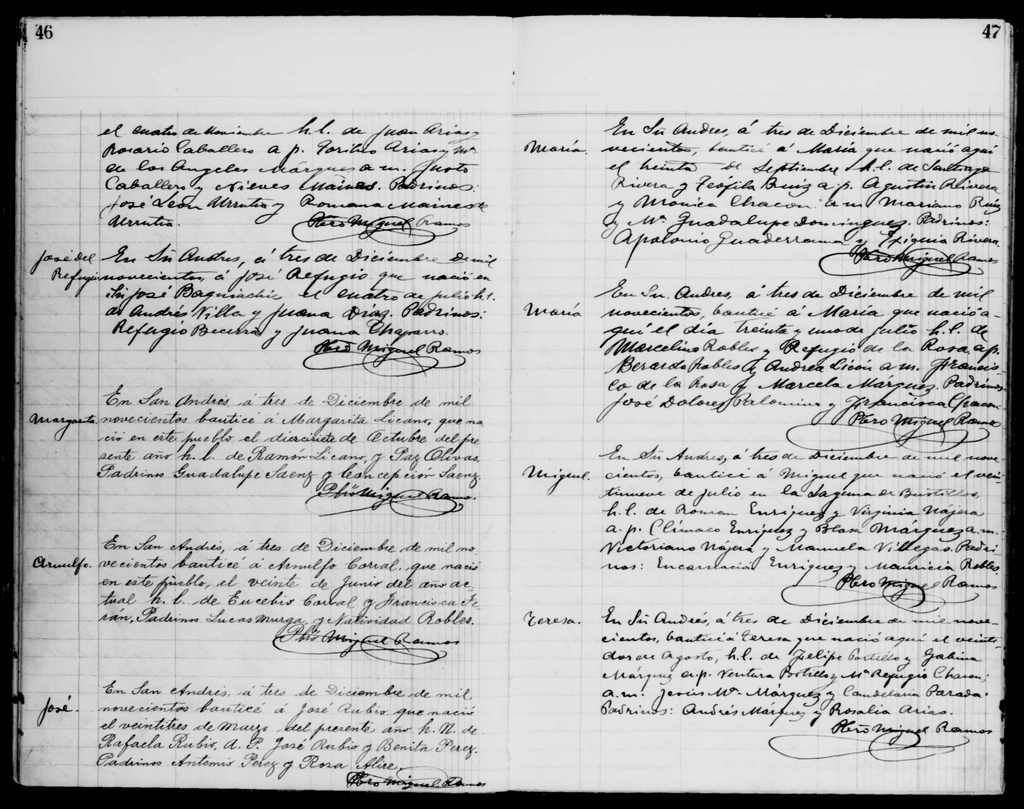 46
el cuatro de Noviembre h.l. de Juan Arias y
Rosario Caballero a p. Arias y Ma.
de los Angeles Márques a m. Justo
Caballero y Nieves Maines. Padrinos:
José León Urrutia y Romana Maines de
Urrutia. Pbro Miguel Ramos
José del Refugio
En Sn Andres, á tres de Diciembre de mil
novecientos, á José Refugio que nació en
Sn José Baquiachic el cuatro de julio h.l.
de Andrés Villa y Juana Diaz. Padrinos:
Refugio Becerra y Juana Chaparro.
Pbro Miguel Ramos
Margarita
En San Andrés, á tres de Diciembre de mil
novecientos bauticé á Margarita Licano, que na
ció en este pueblo el diecisiete de Octubre del pre
sente año h. l. de Ramón Licano, y Paz Olivas.
Padrinos Guadalupe Saenz y Concepción Saenz.
Pbro Miguel Ramos.
Arnulfo.
En San Andrés, á tres de Diciembre de mil no
vecientos bauticé á Arnulfo Corral, que nació
en este pueblo, el veinte de Junio del año ac
tual h. l. de Eucebio Corral y Francisca Te
rán, Padrinos Lucas Murga, y Natividad Robles.
Pbro Miguel Ramos
José.
En San Andrés, á tres de Diciembre de mil
novecientos bauticé á José Rubio, que nació
el veintitres de Marzo del presente año h. N. de
Rafaela Rubio, A. P. José Rubio y Benita Perez.
Padrinos Antemio Perez y Rosa Alire.
Pbro Miguel Ramos
47
María.
En Sn Andres, á tres de Diciembre de mil no
vecientos, bauticé á María que nació aquí
el treinta de Septiembre h.l. de Santiago
Rivera y Teófila Ruiz a.p. Agustín Rivera
y Mónica Chacon a m. Mariano Ruiz
y Ma. Guadalupe Dominguez. Padrinos:
Apolonio Guaderrama y Exiquia Rivera.
Pbro Miguel Ramos
María
En Sn. Andres, á tres de Diciembre de mil
novecientos, bauticé á María que nació a-
quí el día treinta y uno de Julio h.l. de
Marcelino Robles y Refugio de la Rosa, a p.
Berardo Robles y Andrea Licón a m. Francis-
co de la Rosa y Marcela Márquez. Padrinos
José Dolores Palomino y Francisca Chacon
Pbro Miguel Ramos
Miguel.
En Sn Andres, á tres de Diciembre de mil nove
cientos, bauticé á Miguel que nació el vein
tinueve de julio en la Laguna de Bustillos,
h.l. de Roman Enriquez y Virginia Nájera
a.p. Clímaco Enriquez y Blasa Márquez a.m.
Victoriano Nájera y Manuela Villegas. Padri
nos: Encarnación Enriquez y Mauricia Robles.
Pbro Miguel Ramos
Teresa.
En Sn Andrés, á tres de Diciembre de mil nove-
cientos, bauticé á Teresa que nació aquí el veinti
dos de Agosto, h.l. de Felipe Portillo y Gabina
Márquez a.p. Ventura Portillo y Ma Refugio Chacon;
a.m. Jesús Ma. Márquez y Candelaria Parada.
Padrinos: Andrés Márquez y Rosalia Arias.
Pbro Miguel Ramos